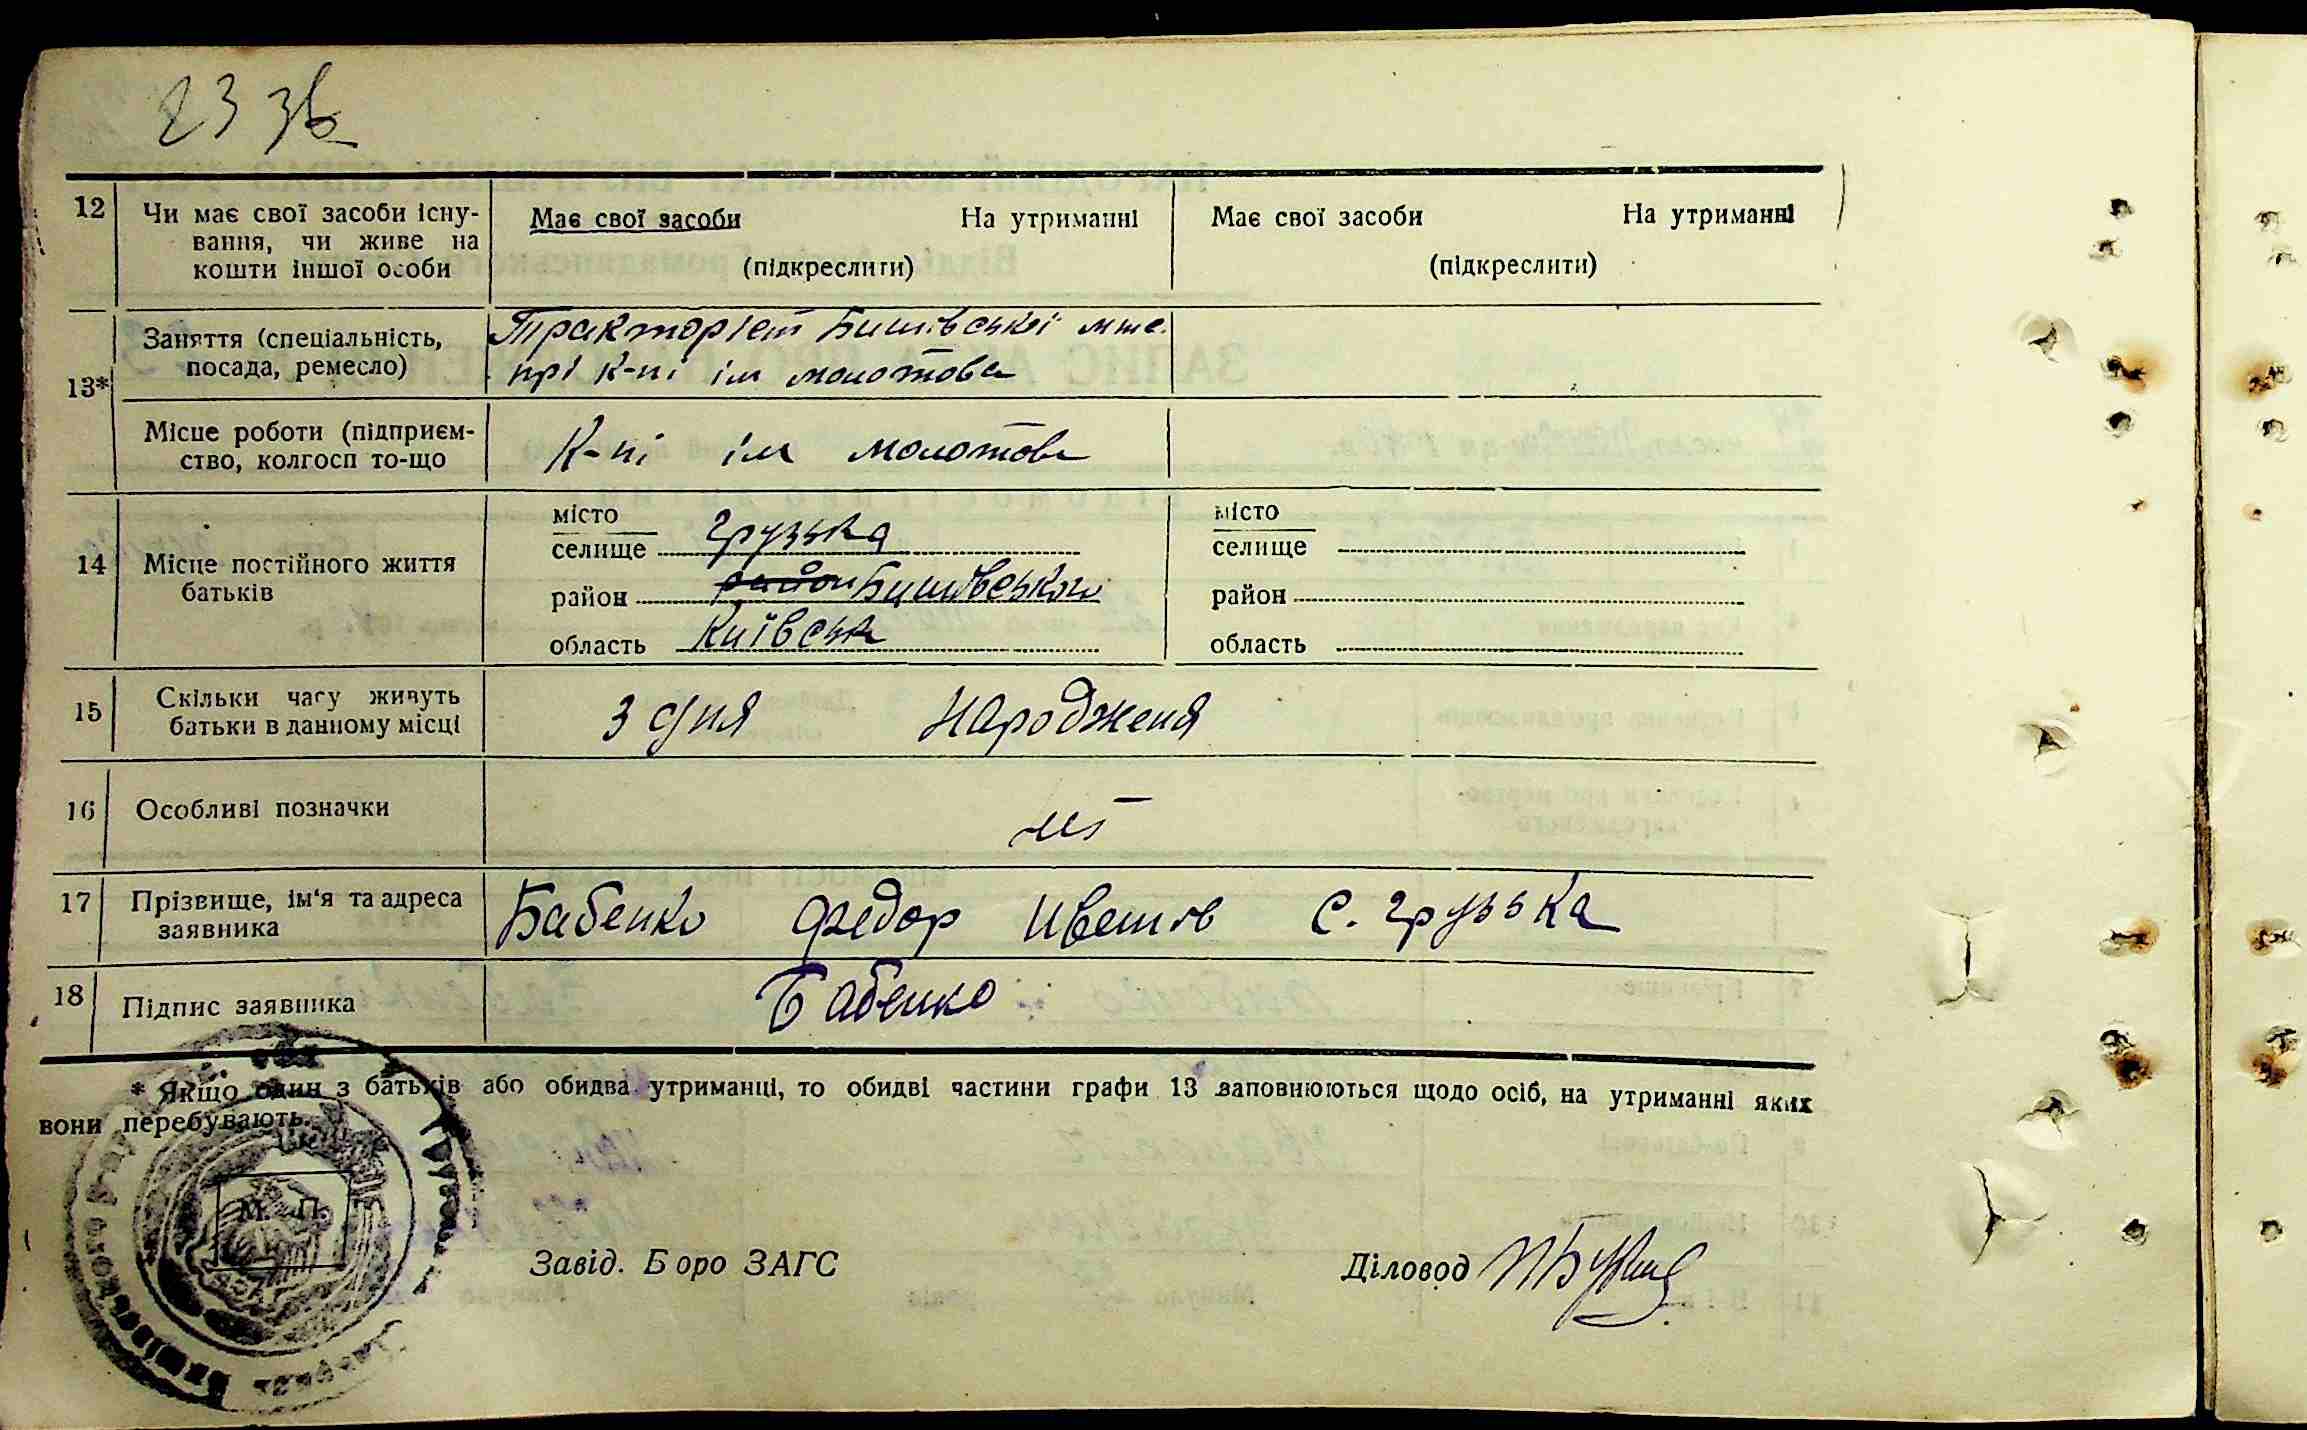 23 зв
12 Чи має свої засоби існу-
вання, чи живе на
кошти іншої особи
Має свої засоби На утриманні
(підкреслити)
Має свої засоби На утриманні
(підкреслити)
13*
Заняття (спеціальність,
посада, ремесло)
Тракторіст Бишівської мтс.
прі к-пі ім молотова
Місце роботи (підприєм-
ство, колгосп то-що
К-пі ім молотова
14 Місце постійного життя
батьків
місто
селище Грузька
район район Бишівського
область Київська
місто
селище
район
область
15 Скільки часу живуть
батьки в данному місці
З дня Народженя
16 Особливі позначки
17 Прізвище, ім'я та адреса
заявника
Бабенко Федор Иванов С. Грузька
18 Підпис заявника
Бабенко
* Якщо один з батьків або обидва утриманці, то обидві частини графи 13 заповнюються щодо осіб, на утриманні яких
вони перебувають.
М. П.
Завід. Бюро ЗАГС
Діловод